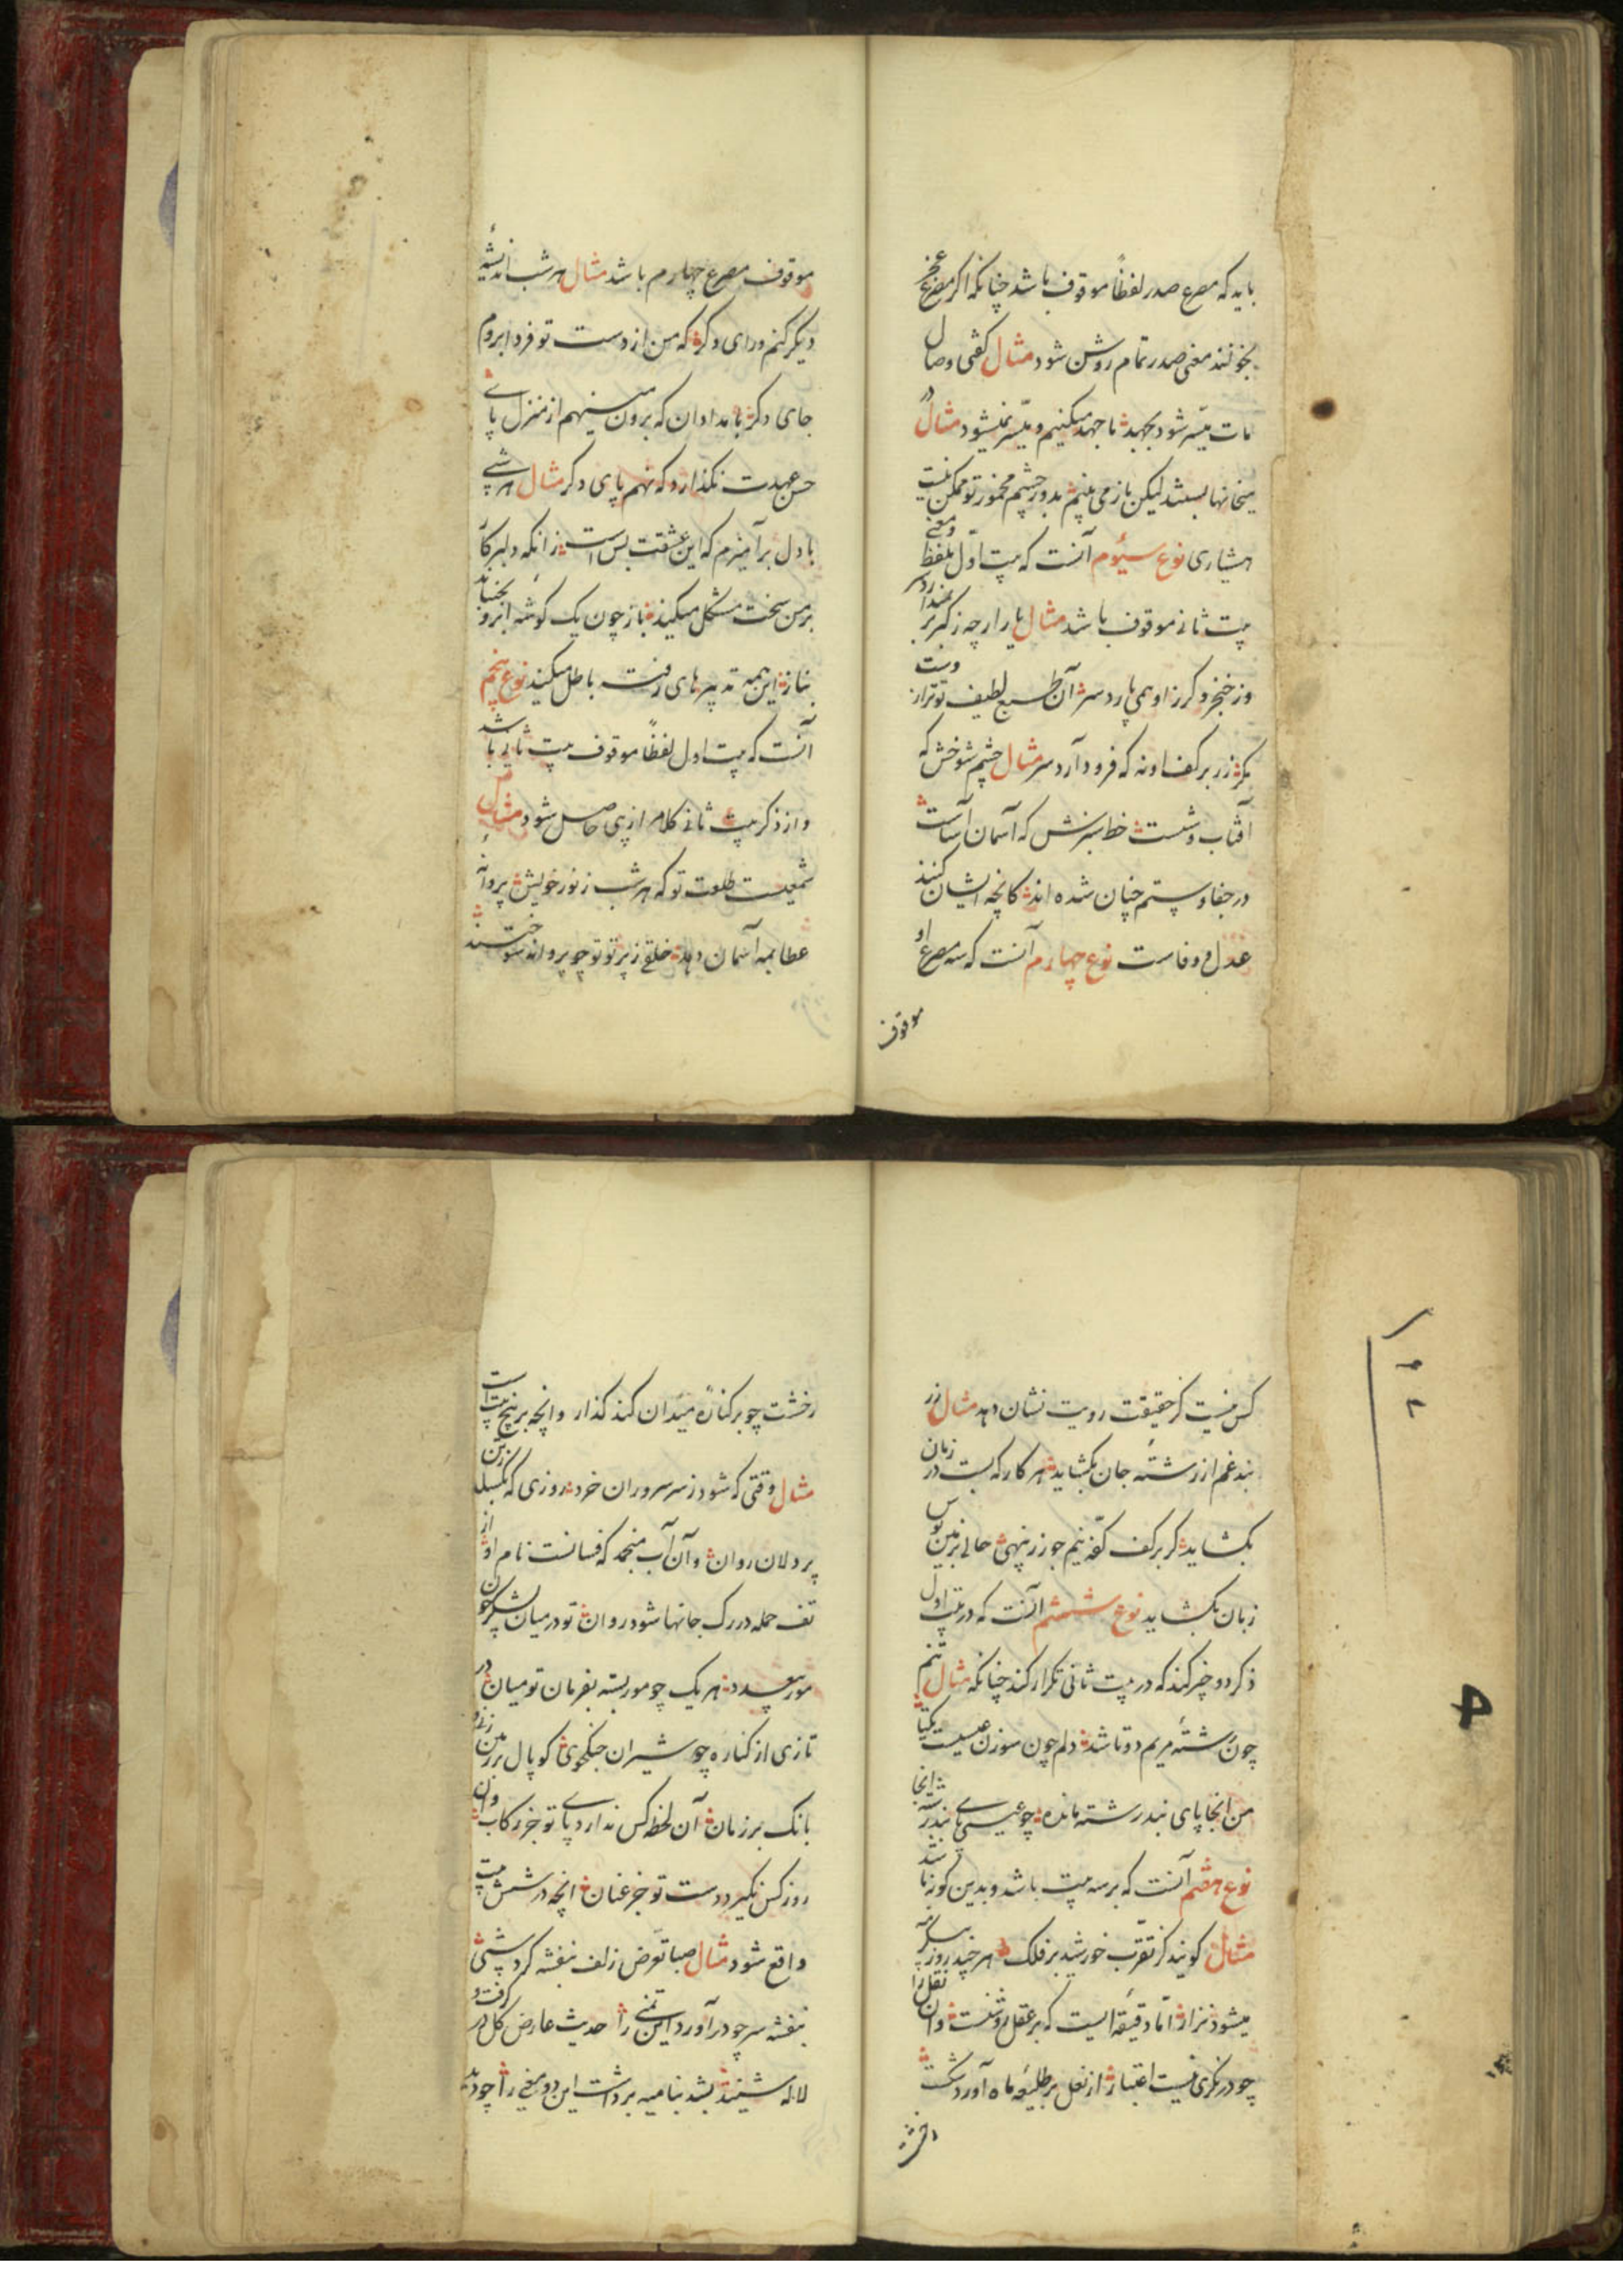 باید که مصرع صدر لفظاً موقوف باشد چنانکه اگر مصرع عجز
نخوانند معنی صدر تمام روشن شود مثال گفتی وصال
مات میسر شود بجهد ما جهد میکنیم و میسر نمیشود مثال دگر
میخانها ببستند لیکن باز می بینم بدور چشم مخمور تو ممکن نیست
هشیاری نوع سیوم آنست که بیت اول بلفظ و معنی
بیت ثانی موقوف باشد مثال یار ارچه ز گهر بر
وز خنجر و گرز او همی بارد سر آن طبع لطیف تو تراز
زر بر کف او نه که فرود آرد سر مثال چشم شوخش که
آفتاب وشست خط سبزش که آسمان آساست
در جفا و ستم چنان شده اند کانچه ایشان کنند
عدل و وفاست نوع چهارم آنست که سه مصرع او
موقوف
موقوف مصرع چهارم باشد مثال هر شب اندیشهٔ
دیگر کنم و رای دگر که من از دست تو فردا بروم
جای دگر بامدادان که برون مینهم از منزل پای
حسن عهدت نگذارد که نهم پای دگر مثال هر شبی
با دل برآمیزم که این عشقت بس است زانکه دلبر کار
بر من سخت مشکل میکند باز چون یک گوشه ابرو بجنباند
بناز این همه تدبیرهای رفته باطل میکند نوع پنجم
آنست که بیت اول لفظاً موقوف بیت ثانی باشد
و از ذکر بیت ثانی کلام از پی حاصل شود مثال
شمعیست طلعت تو که هر شب ز نور خویش پروانهٔ
عطا بمه آسمان دهد خلقی ز پرتو تو چو پروانه سوختند
کس نیست کز حقیقت رویت نشان دهد مثال
بند غم از رشتهٔ جان بگشاید هر کار که بست در زمان
بگشاید گر بر کف کفه نیم جو زر بنهی حالی
زبان بگشاید نوع ششم آنست که در بیت اول
ذکر دو چیز کند که در بیت ثانی تکرار کند چنانکه مثال تنم
چون رشتهٔ مریم دوتا شد دلم چون سوزن عیسیست یکتا
من اینجا پای بند رشته مانده چو عیسی پای بند سوزن آنجا
نوع هفتم آنست که بر سه بیت باشد و بدین گونه
مثال گویند کز تقرب خورشید بر فلک هر چند روز
میشود نزار اما دقیقهٔ ایست که بر عقل روشنست وان نقل را
چو درنگری نیست اعتبار از نعل بر طلیعه ماه آورد شکست
رخشت چو بر کنارهٔ میدان کند گذار و انچه بر پنج بیت است
مثال وقتی که شود ز سر سروران خرد روزی که بگسلد
پر دلان روان وان آب منجمد که فسانست نام او از
تف حمله در رگ جانها شود روان تو در میان لشکر چون
مور بیعدد هر یک چو مور بسته بفرمان تو میان در
تازی از کناره چو شیران جنگجوی کوپال بر زمین
بانگ بر زمان آن لحظه کس ندارد پای تو جز رکاب وان
روز کس نگیرد دست تو جز عنان انچه در شش بیت
واقع شود مثال صبا تعرض زلف بنفشه کرد شبی
بنفشه سر چو درآورد این تمنی را حدیث عارض گل در گرفت و
لاله شنید بشد بنامیه برداشت این دو معنی را چو دید